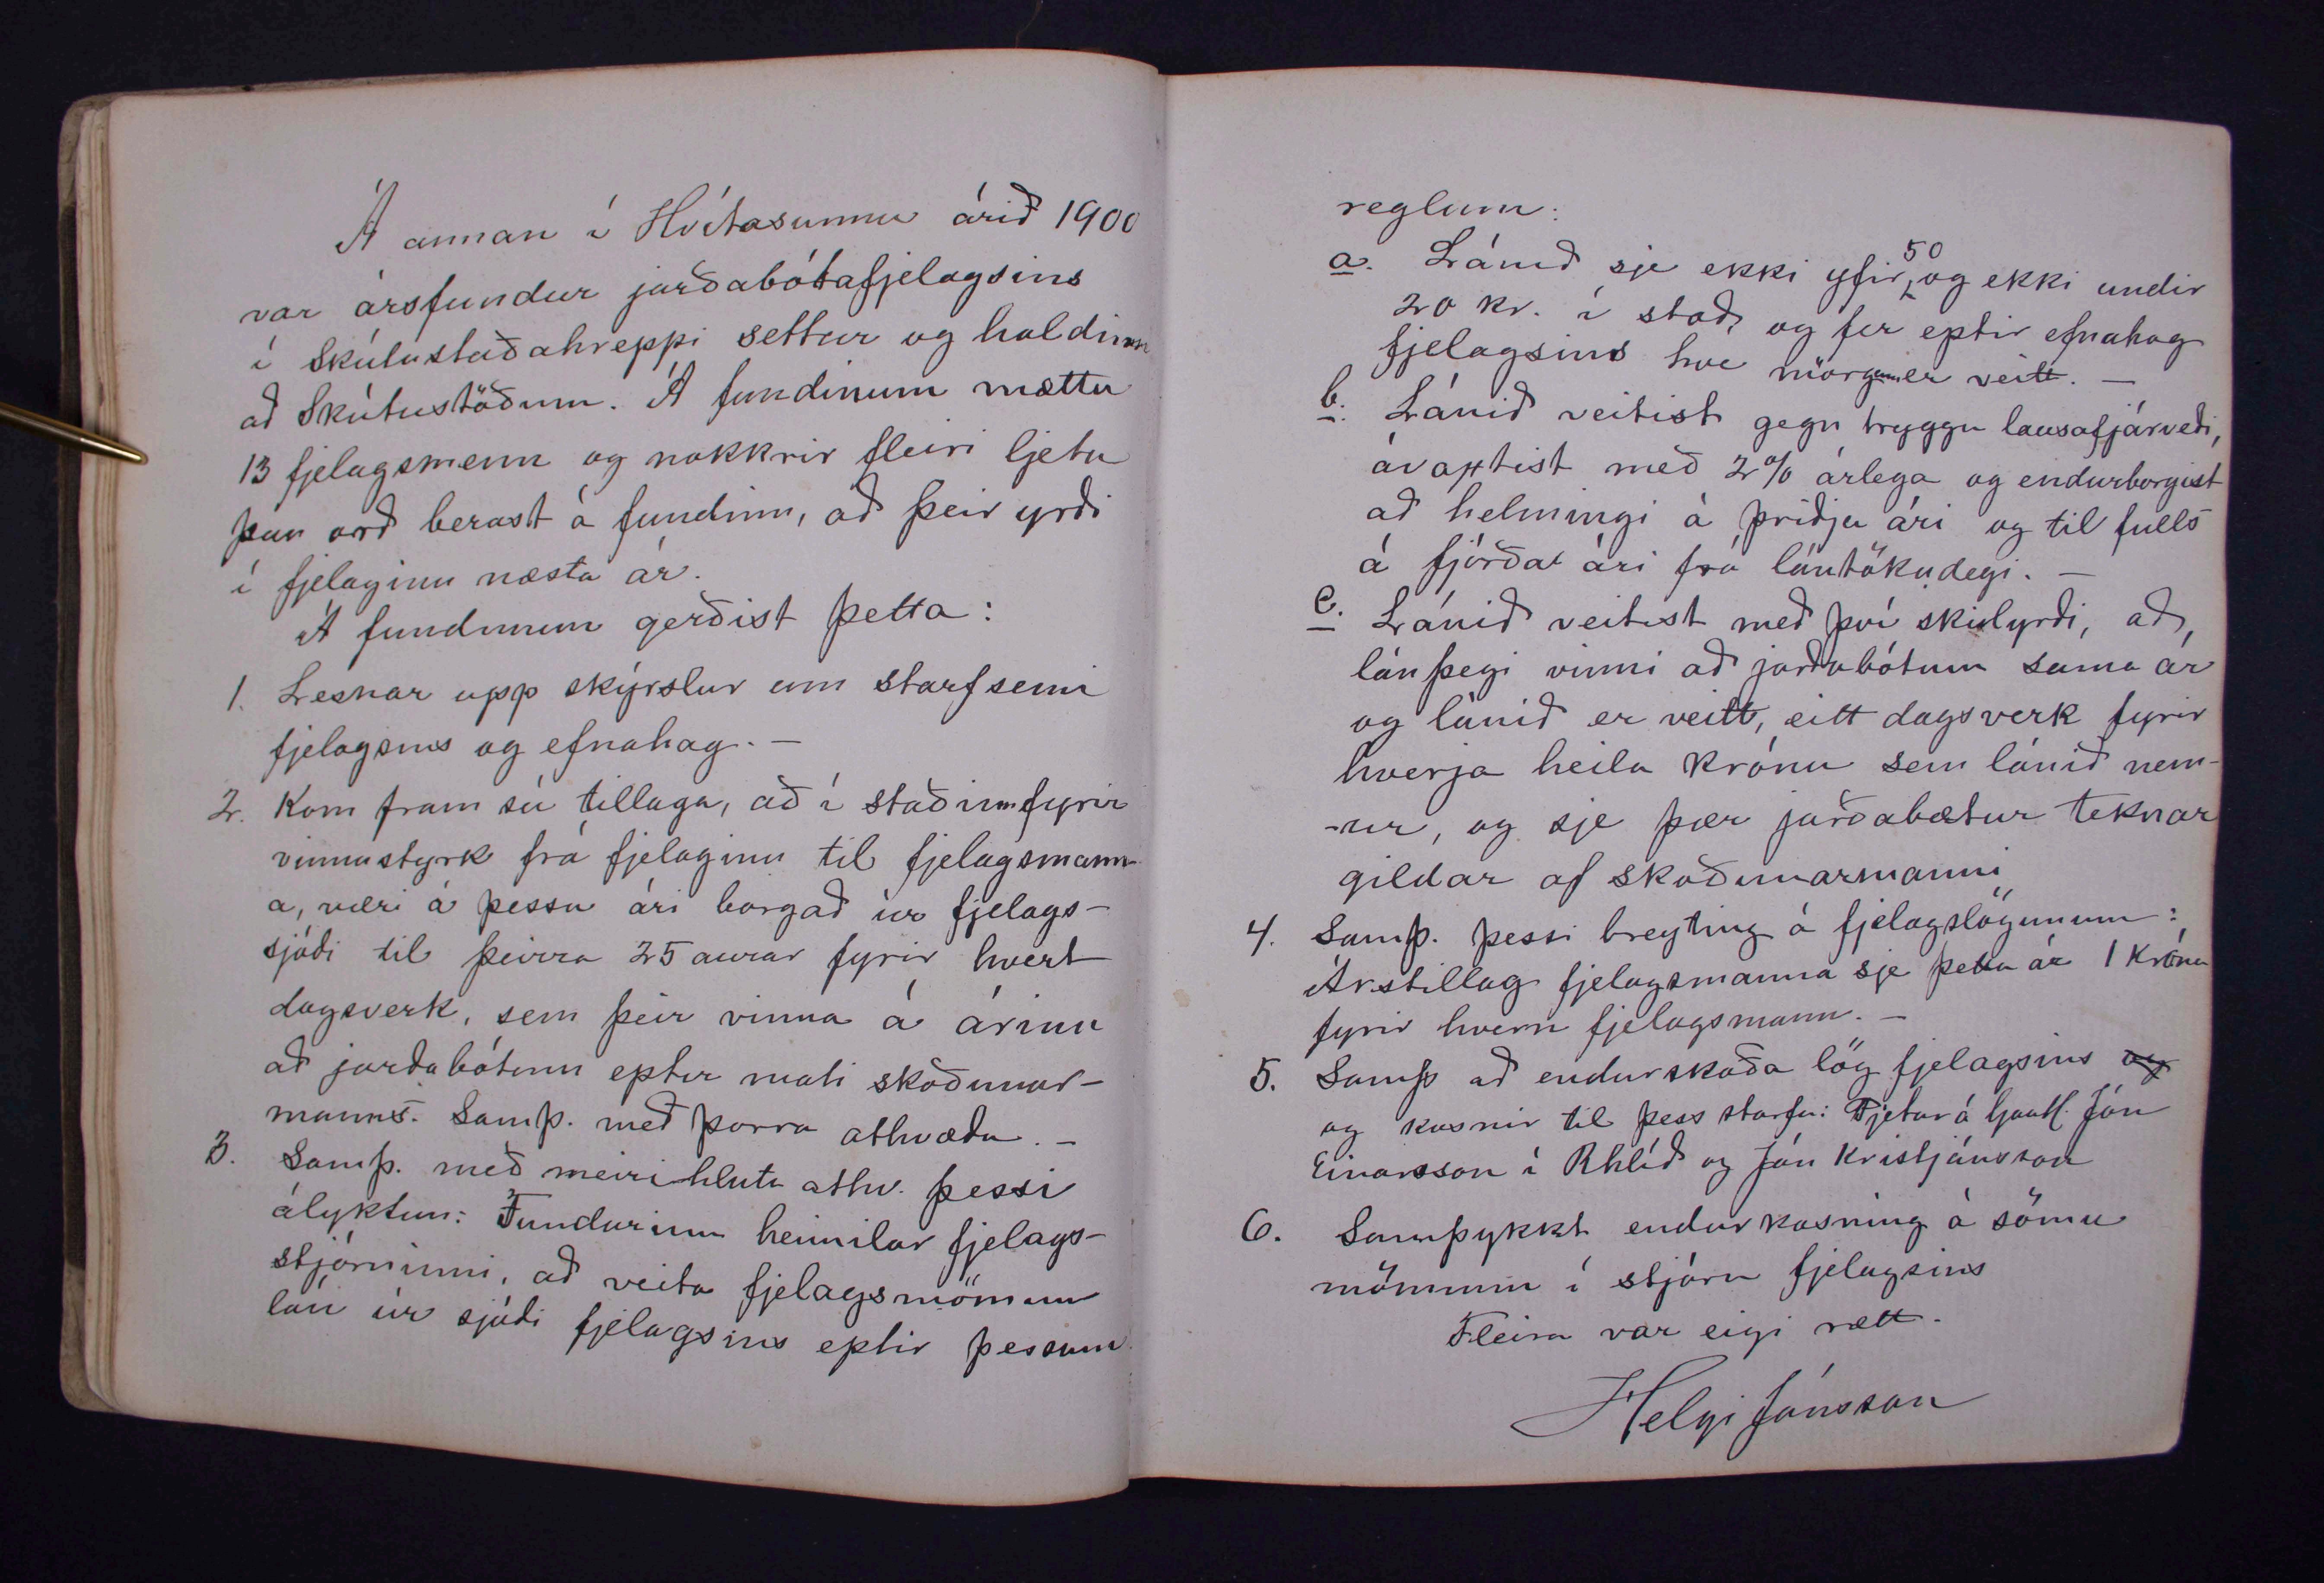 Á annan í Hvítasunnu árið 1900
var ársfundur jarðabótafjelagsins
í Skútustaðahreppi settur og haldinn
að Skútustöðum. Á fundinum mættu
13 fjelagsmenn og nokkrir fleiri ljetu
þau orð berast á fundinn, að þeir yrði
í fjelaginu næsta ár.
Á fundinum gerðist þetta:
1. Lesnar upp skýrslur um starfsemi
fjelagsins og efnahag. –
2. Kom fram sú tillaga, að í staðinn fyrir
vinnustyrk frá fjelaginu til fjelagsmann-
a, væri á þessu ári borgað úr fjelags-
sjóði til þeirra 25 aurar fyrir hvert
dagsverk, sem þeir vinna á árinu
að jarðabótum eptir mati skoðunar-
manns. Samþ. með þorra athvæða. –
3. Samþ. með meiri hluta athv. þessi
ályktun: Fundurinn heimilar fjelags-
stjórninni, að veita fjelagsmönnum
lán úr sjóði fjelagsins eptir þessum
reglum:
a. Lánið sje ekki yfir 50 og ekki undir
20 kr. í stað, og fer eptir efnahag
fjelagsins hve mörgum er veitt. –
b. Lánið veitist gegn tryggu lausafjárveði,
ávaxtist með 2% árlega og endurborgist
að helmingi á þriðja ári og til fulls
á fjórða ári frá lántökudegi. –
c. Lánið veitist með því skilyrði, að
lánþegi vinni að jarðabótum sama ár
og lánið er veitt, eitt dagsverk fyrir
hverja heila krónu sem lánið nem-
-ur, og sje þær jarðabætur teknar
gildar af skoðunarmanni
4. Samþ. þessi breyting á fjelagslögunum:
Árstillag fjelagsmanna sje þetta ár 1 Króna
fyrir hvern fjelagsmann. –
5. Samþ að endurskoða lög fjelagsins og
og kosnir til þess starfa: Pjetur á Gautl. Jón
Einarsson í Rhlíð og Jón Kristjánsson
6. Samþykkt endurkosning á sömu
mönnum í stjórn fjelagsins
Fleira var eigi rætt.
Helgi Jónsson